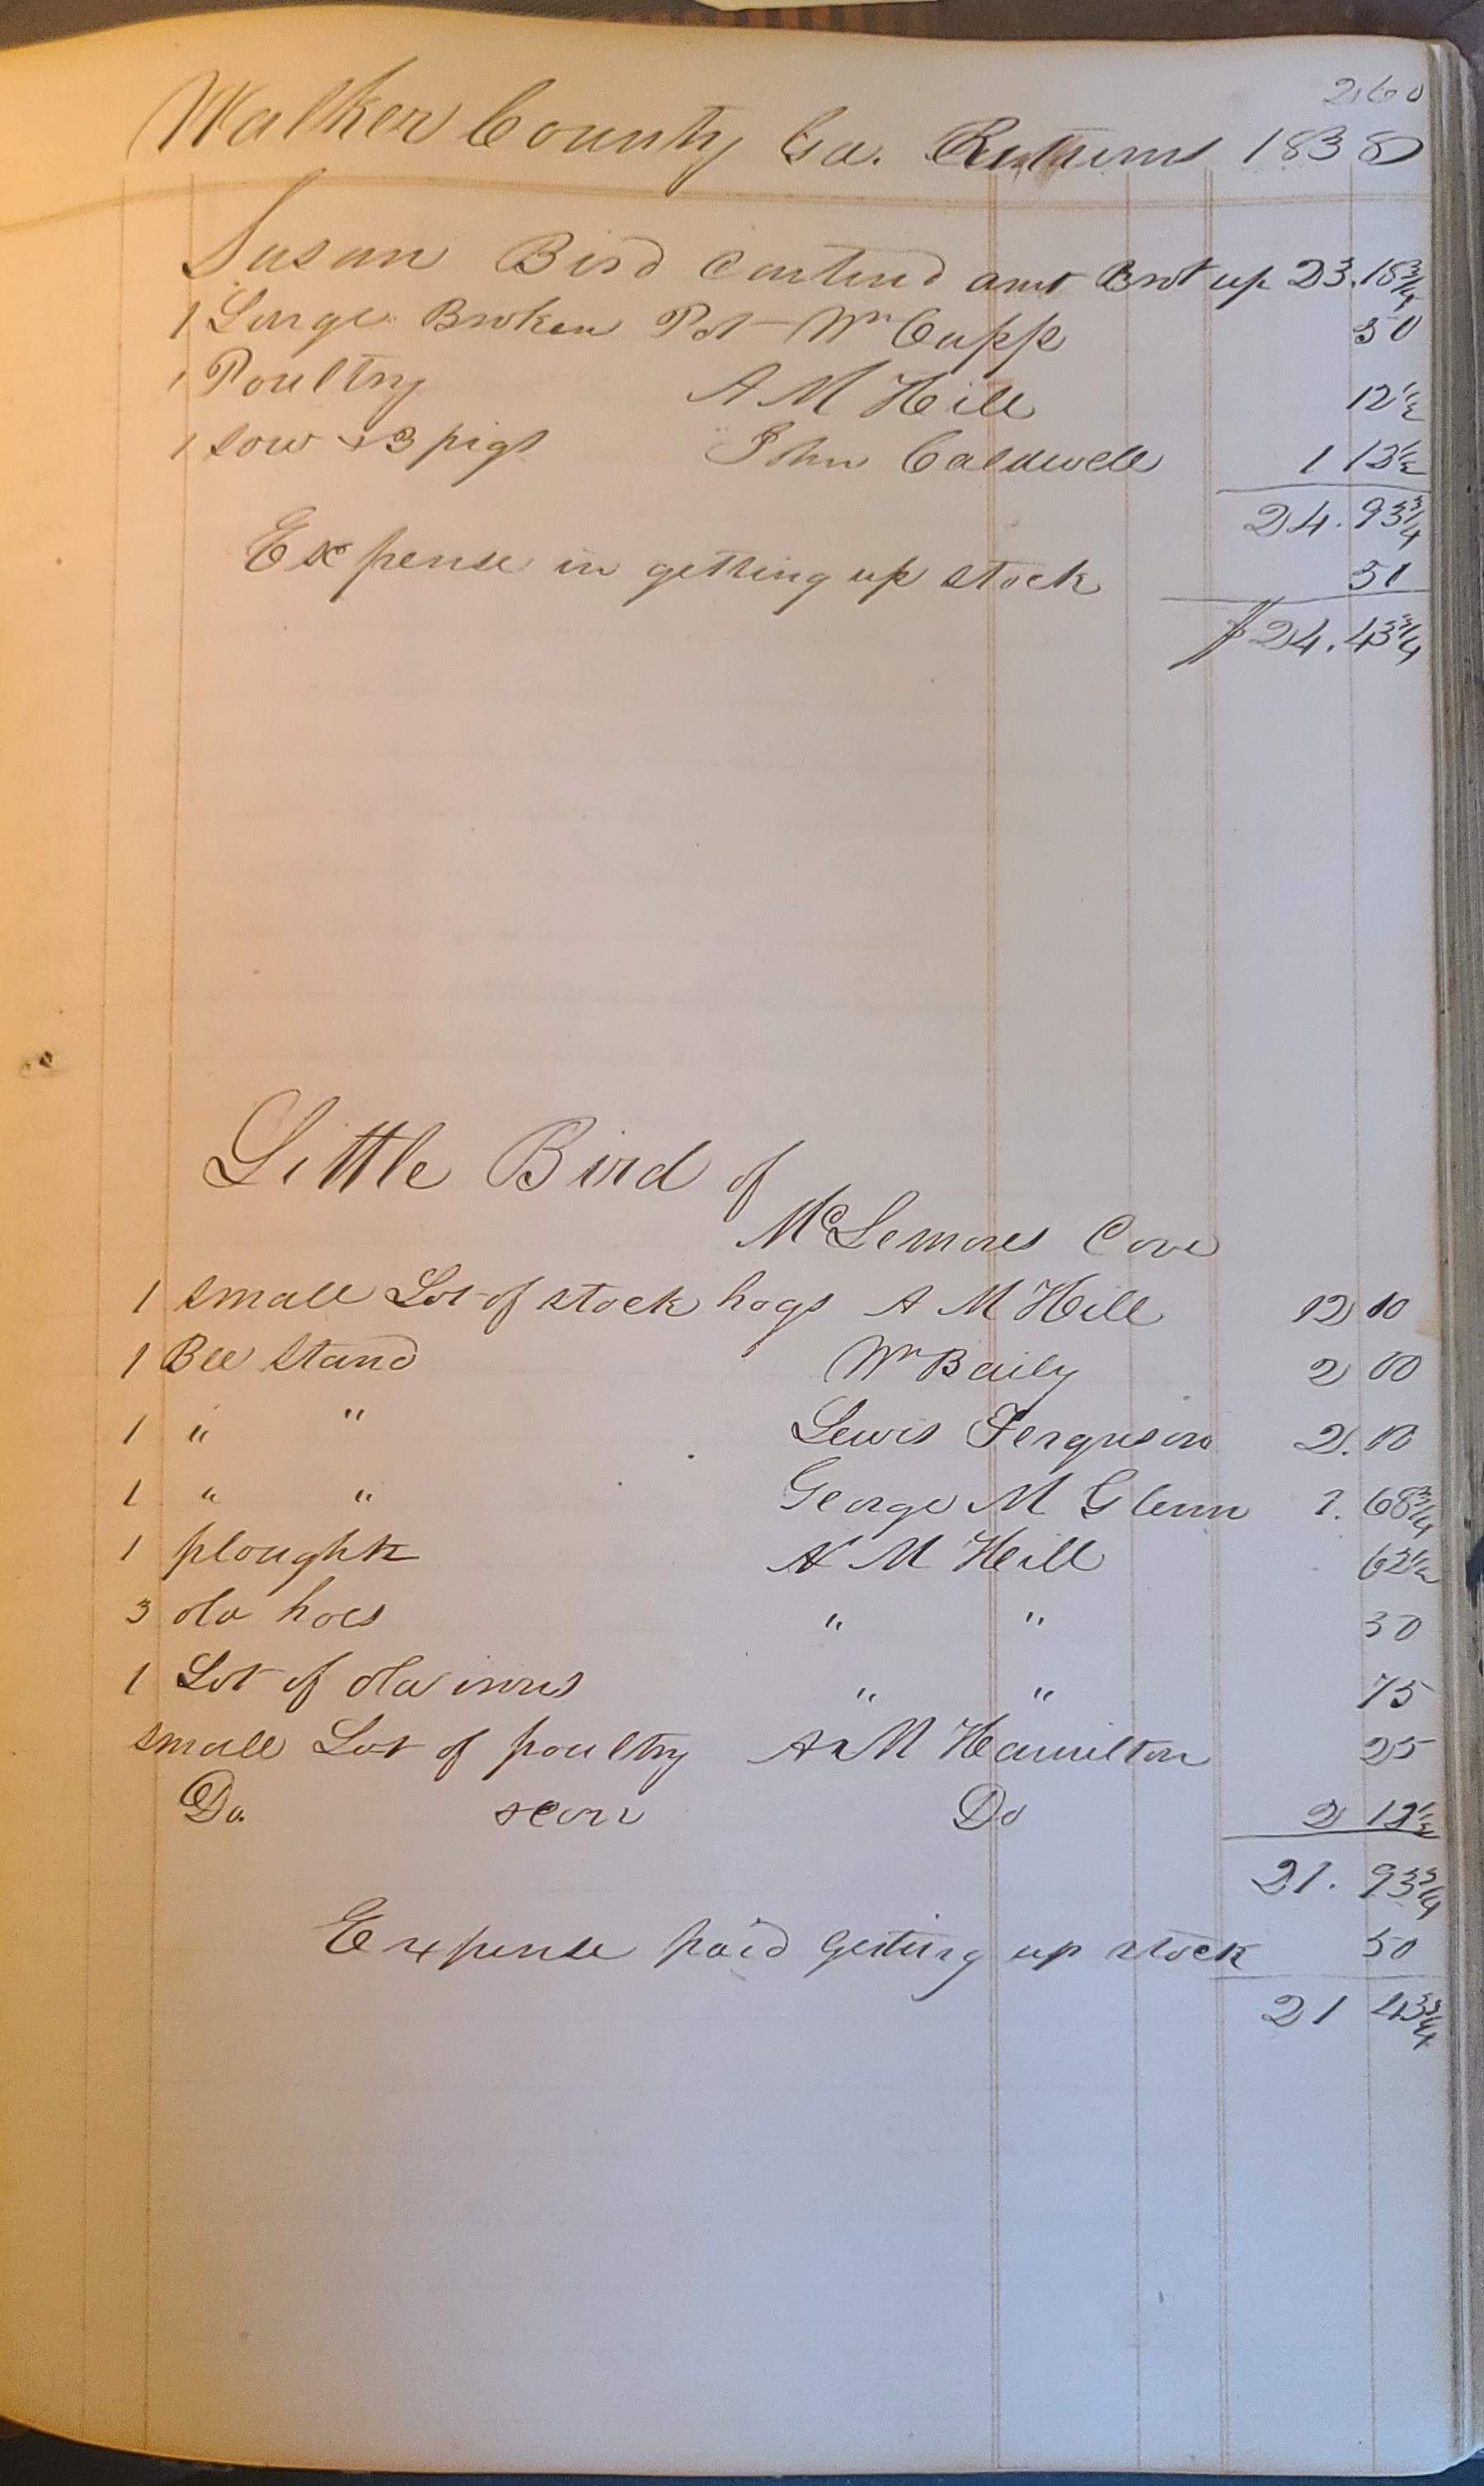 260
Walker County Ga. Returns 1838
Susan Bird Contind amt Brot up 23.18¾
1 Large Broken Pot Wm Capp 50
1 Poultry A M Hill 12½
1 sow & 3 pigs John Caldwell 1 12½
24.93¾
Expense in getting up stock 50
$24.43¾
Little Bird of
McLemores Cove
1 small Lot of stock hogs A M Hill 12 00
1 Bee Stand Wm Baily 2 00
1 " " Lewis Ferguson 2.00
1 " " George M Glenn 1.68¾
1 plough A M Hill 62½
3 old hoes " " 50
1 Lot of old irons " " 75
small Lot of poultry M Hamilton 25
Do. Do 2 12½
21.93¾
Expense paid getting up stock 50
21 43¾